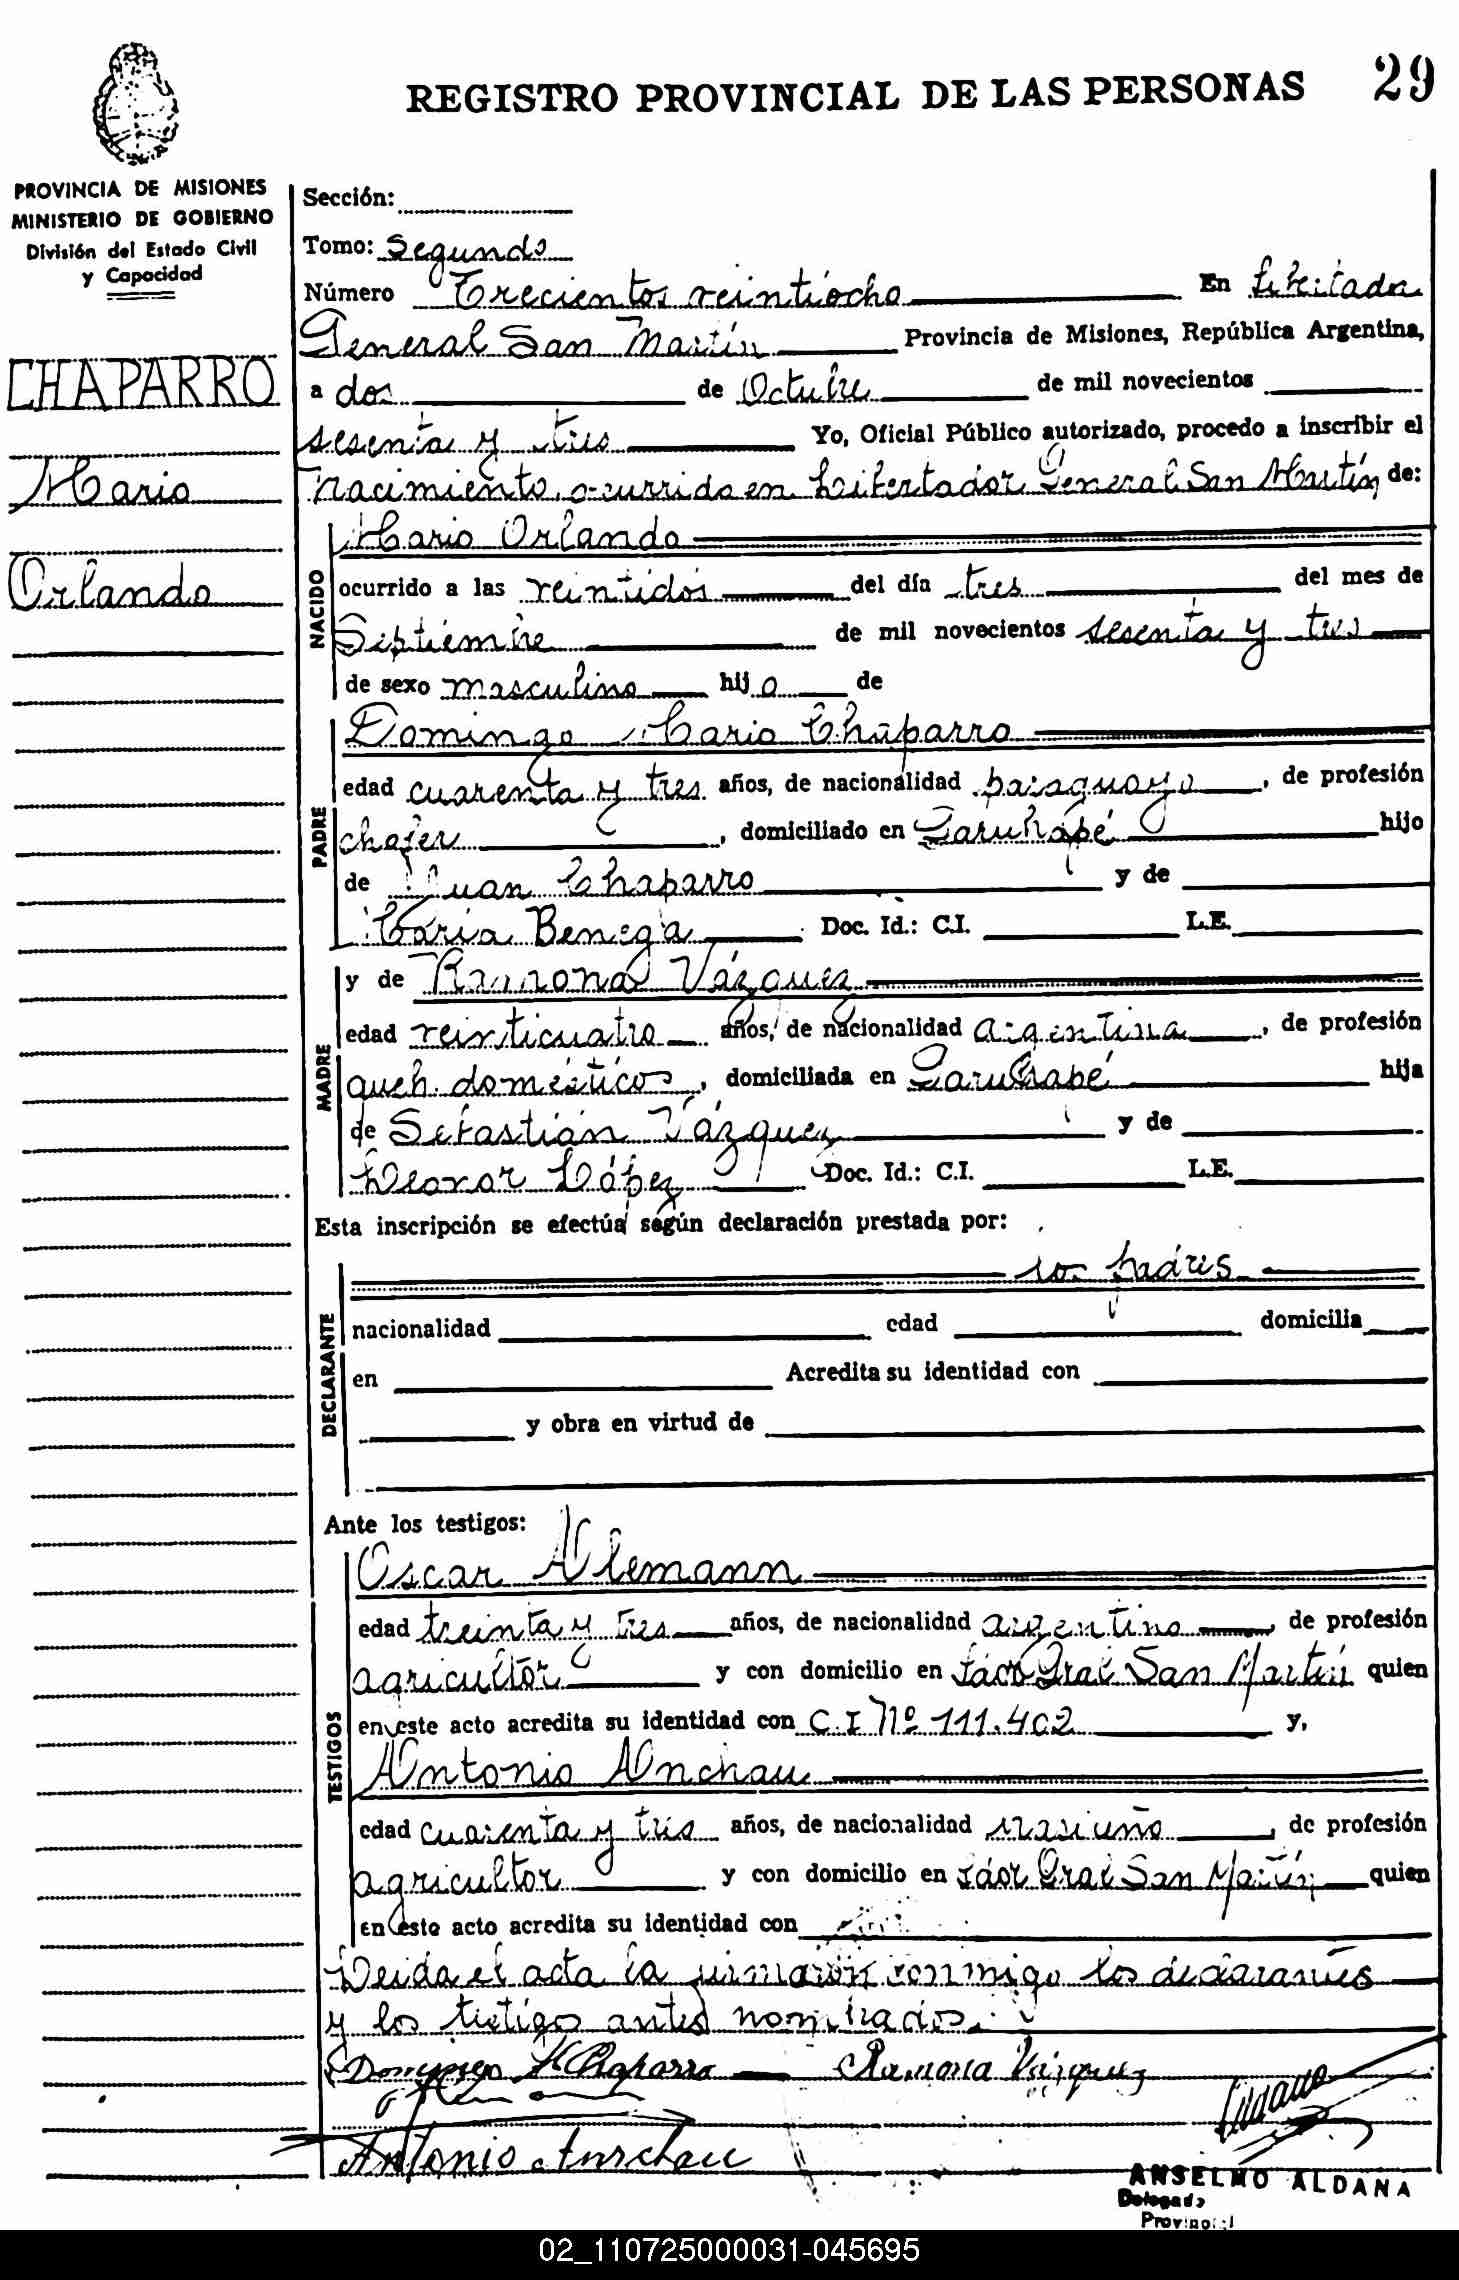 29
REGISTRO PROVINCIAL DE LAS PERSONAS
PROVINCIA DE MISIONES
MINISTERIO DE GOBIERNO
División del Estado Civil
y Capacidad
CHAPARRO
Mario
Orlando
Sección:
Tomo: Segundo
Número Trecientos veintiocho En Libertador
General San Martín Provincia de Misiones, República Argentina,
a dos de Octubre de mil novecientos
sesenta y tres Yo, Oficial Público autorizado, procedo a inscribir el
nacimiento ocurrido en Libertador General San Martín de:
NACIDO
Mario Orlando
ocurrido a las veintidós del día tres del mes de
Septiembre de mil novecientos sesenta y tres
de sexo masculino hijo de
PADRE
Domingo Mario Chaparro
edad cuarenta y tres años, de nacionalidad paraguayo, de profesión
chofer, domiciliado en Garuhapé hijo
de Juan Chaparro y de
María Benega Doc. Id.: C.I. L.E.
MADRE
y de Ramona Vázquez
edad veinticuatro años, de nacionalidad argentina, de profesión
queh. domésticos, domiciliada en Garuhapé hija
de Sebastián Vázquez y de
Leonor López Doc. Id.: C.I. L.E.
Esta inscripción se efectúa según declaración prestada por:
DECLARANTE
los padres
nacionalidad edad domicilia
en Acredita su identidad con
y obra en virtud de
Ante los testigos:
TESTIGOS
Oscar Alemann
edad treinta y tres años, de nacionalidad argentino, de profesión
agricultor y con domicilio en Ldor Gral San Martín quien
en este acto acredita su identidad con C.I Nº 111.402 y,
Antonio Anchau
edad cuarenta y tres años, de nacionalidad, de profesión
agricultor y con domicilio en Ldor Gral San Martín quien
en este acto acredita su identidad con
Leída el acta la firmaron conmigo los declarantes
y los testigos antes nombrados.
Domingo M Chaparro Ramona Vázquez
Antonio Anchau
ANSELMO ALDANA
Delegado
Provincial
02_110725000031-045695